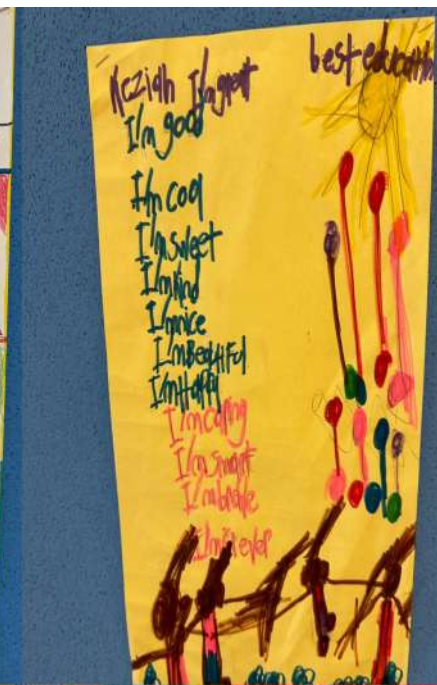 Keziah I'm great best education
I'm good
I'm cool
I'm sweet
I'm kind
I'm nice
I'm Beautiful
I'm Happy
I'm caring
I'm smart
I'm brave
I'm clever